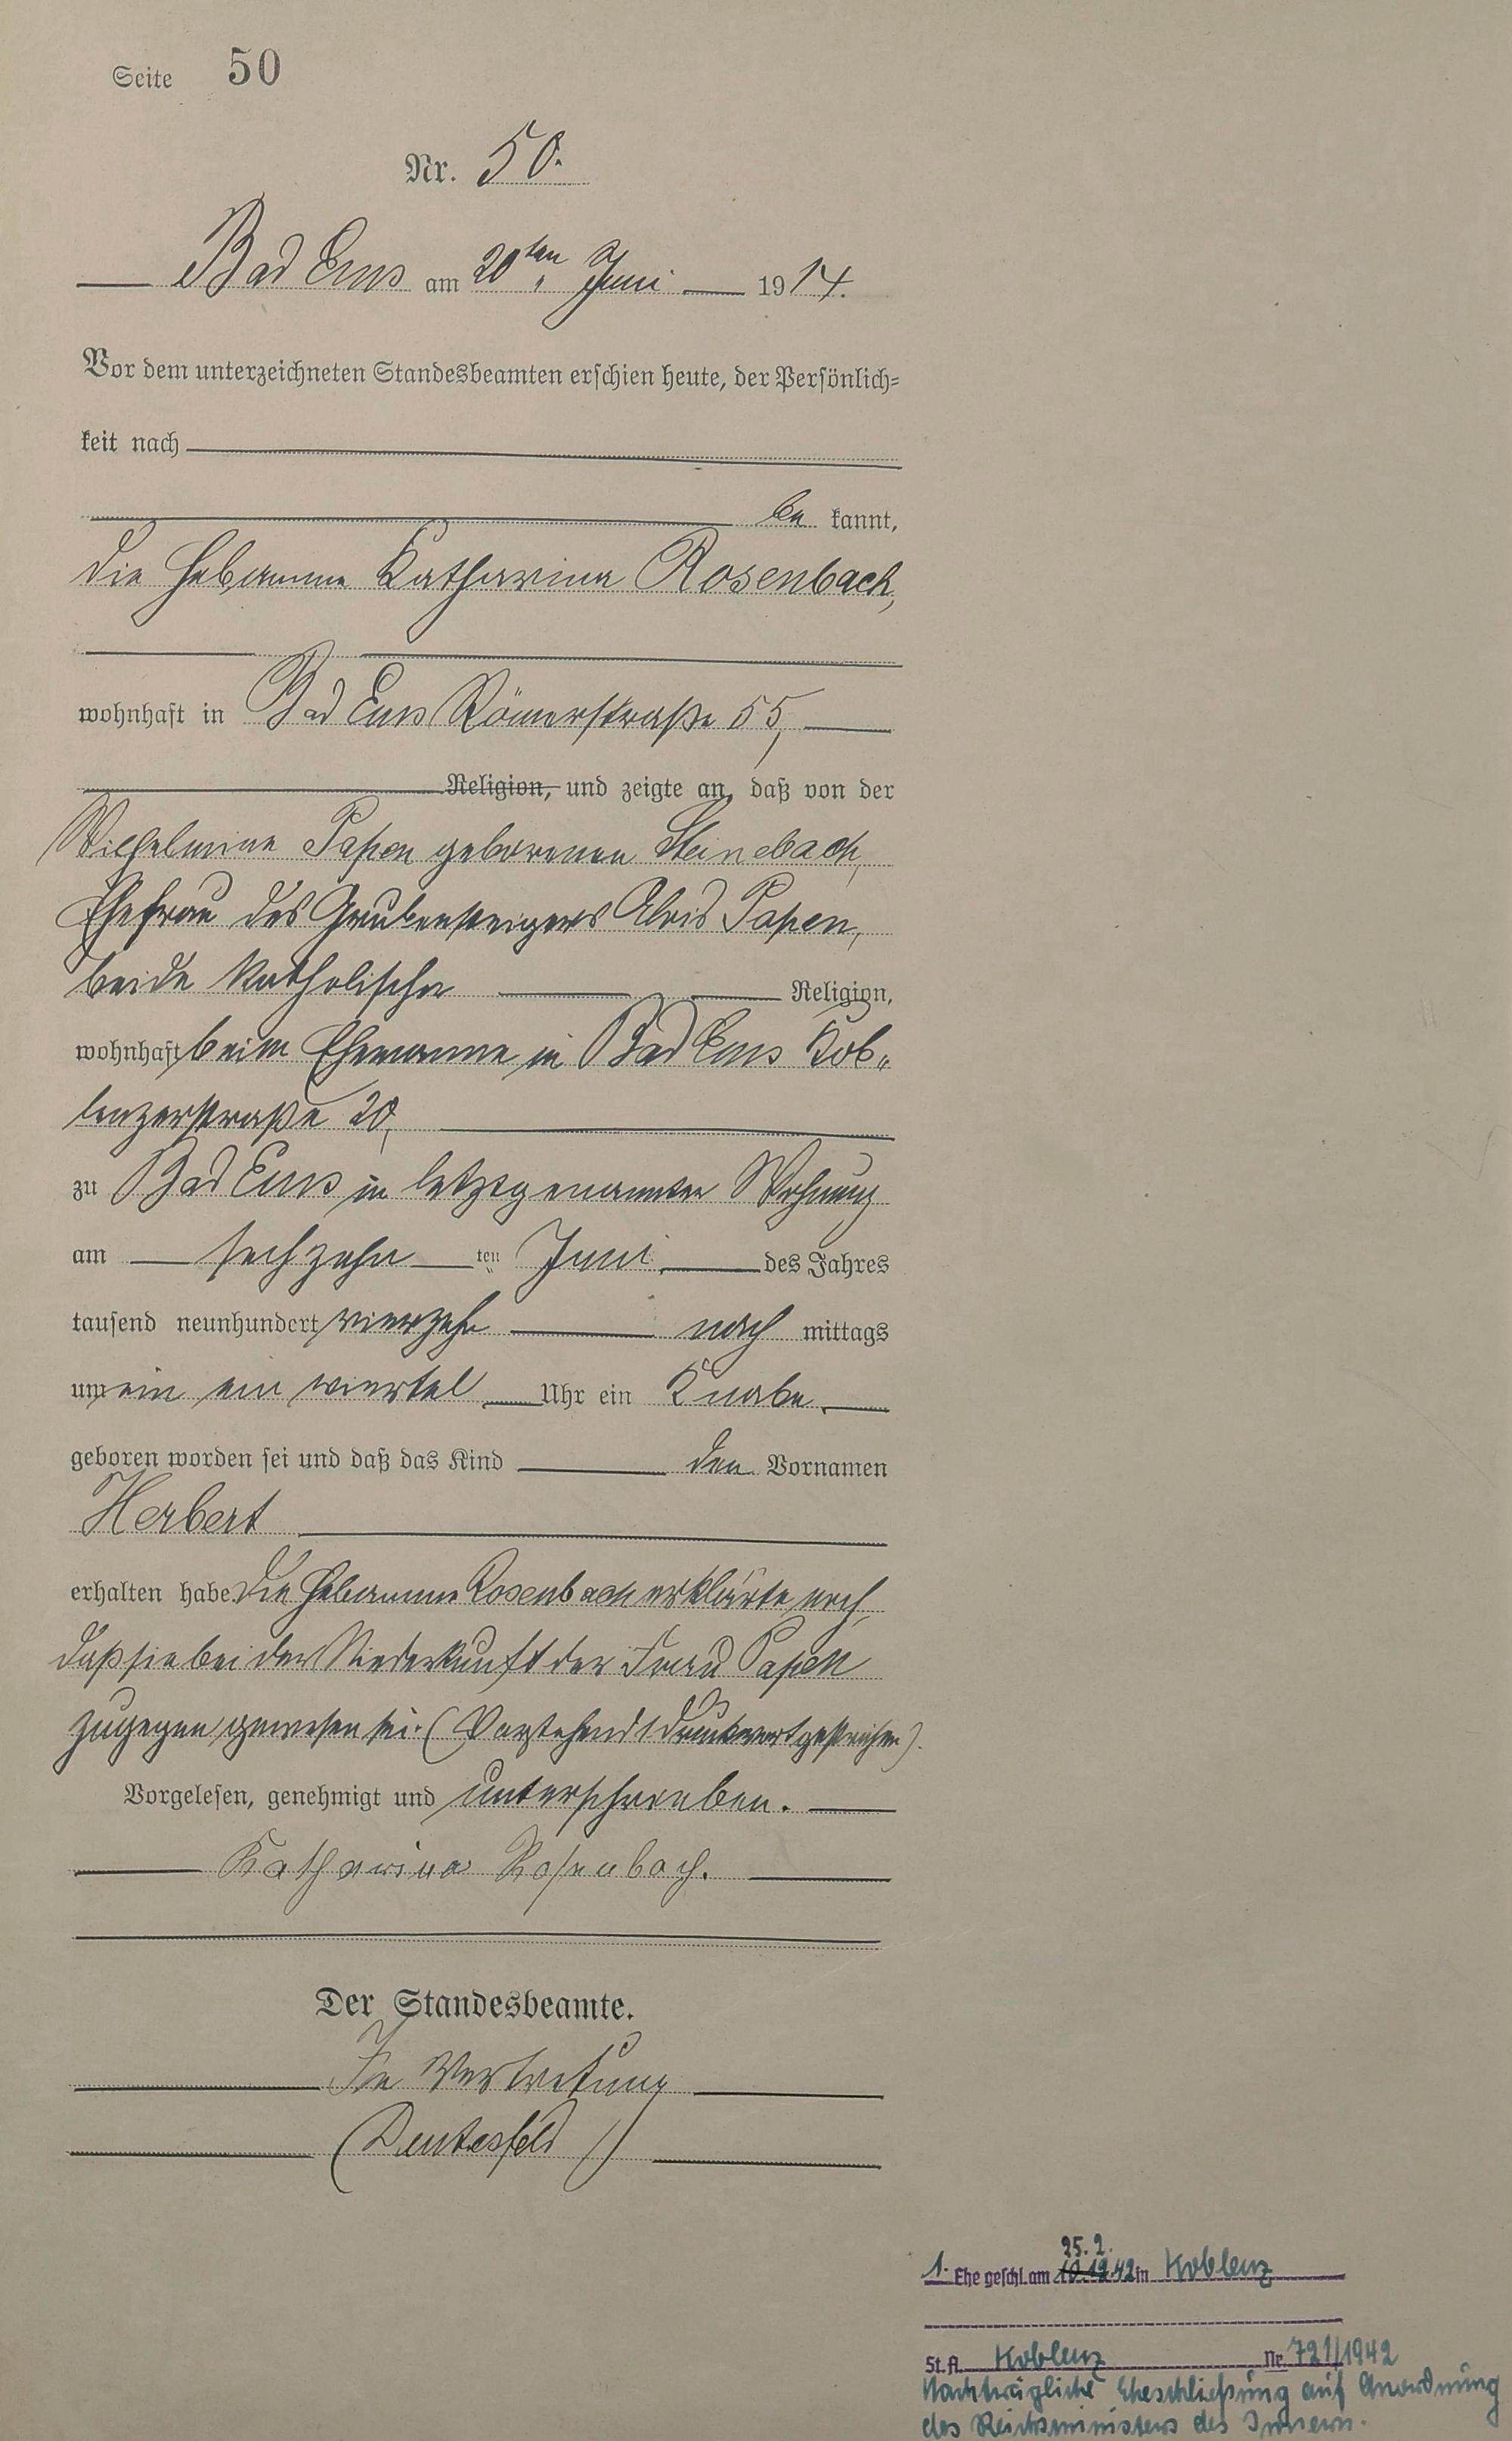 Seite 50
Nr. 50.
Bad Ems am 20ten Juni 1914.
Vor dem unterzeichneten Standesbeamten erschien heute, der Persönlich-
keit nach
be kannt,
die Hebamme Katharina Rosenbach,
wohnhaft in Bad Ems Römerstraße 55,
Religion, und zeigte an, daß von der
Wilhelmine Papen geborenen Steinebach,
Ehefrau des Grubensteigers Alois Papen,
beide katholischer Religion,
wohnhaft beim Ehemanne in Bad Ems Kob-
lenzerstraße 20,
zu Bad Ems in letztgenannter Wohnung
am sechzehn ten Juni des Jahres
tausend neunhundert vierzehn nach mittags
um ein ein viertel Uhr ein Knabe
geboren worden sei und daß das Kind den Vornamen
Herbert
erhalten habe. Die Hebamme Rosenbach erklärte noch,
daß sie bei der Niederkunft der Frau Papen
zugegen gewesen sei. (Vorstehend 1 Druckwort gestrichen).
Vorgelesen, genehmigt und unterschrieben.
Katharina Rosenbach.
Der Standesbeamte.
In Vertretung
(Dentesfeld)
25.2.
1. Ehe geschl. am 10.12.42 in Koblenz
St. A. Koblenz Nr. 721/1942
Nachträgliche Eheschließung auf Anordnung
des Reichsministers des Innern.